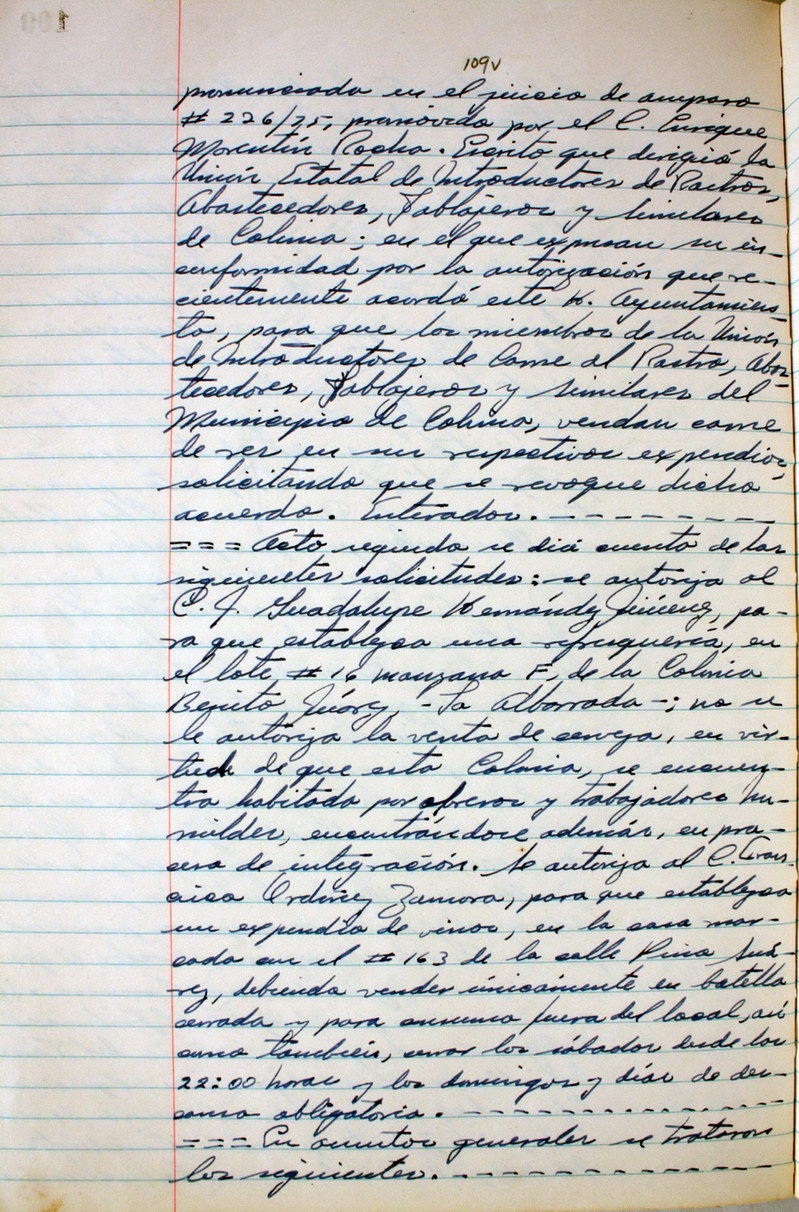 109v
pronunciada en el juicio de amparo
# 226/75, promovido por el C. Enrique
Morentín Rocha. Escrito que dirigió la
Unión Estatal de Introductores de Rastros,
Abastecedores, Tablajeros y Similares
de Colima; en el que expresan su in-
conformidad por la autorización que re-
cientemente acordó este H. Ayuntamien-
to, para que los miembros de la Unión
de Introductores de Carne al Rastro, Abas-
tecedores, Tablajeros y Similares del
Municipio de Colima, vendan carne
de res en sus respectivos expendios,
solicitando que se revoque dicho
acuerdo. Enterados. - - - - - - - - -
= = = Acto seguido se dió cuenta de las
siguientes solicitudes: se autoriza al
C. J. Guadalupe Hernández Jiménez, pa-
ra que establezca una refresquería, en
el lote # 16 manzana F, de la Colonia
Benito Juárez, - La Albarrada -; no se
le autoriza la venta de cerveza, en vir-
tud de que esta Colonia, se encuen-
tra habitada por obreros y trabajadores hu-
mildes, encontrándose además, en pro-
ceso de integración. Se autoriza al C. Fran-
cisco Ordóñez Zamora, para que establezca
un expendio de vinos, en la casa mar-
cada con el # 163 de la calle Pino Suá-
rez, debiendo vender únicamente en botella
cerrada y para consumo fuera del local, así
como también, cerrar los sábados desde las
22:00 horas y los domingos y días de des-
canso obligatorio. - - - - - - - - - - - - -
= = = En asuntos generales se trataron
los siguientes. - - - - - - - - - - - - -